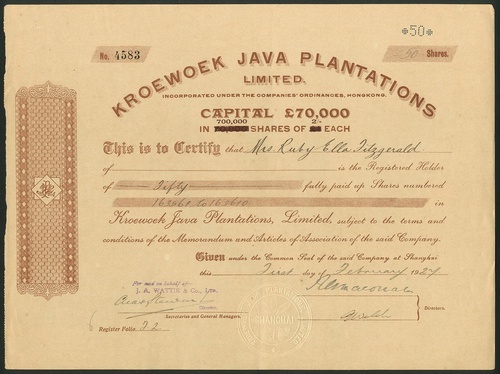 *50*
No. 4583
50 Shares.
KROEWOEK JAVA PLANTATIONS
LIMITED.
INCORPORATED UNDER THE COMPANIES' ORDINANCES, HONGKONG.
CAPITAL £70,000
700,000 2/-
IN SHARES OF EACH
This is to Certify that Mrs Ruby Ella Fitzgerald
of is the Registered Holder
of Fifty fully paid up Shares numbered
163561 to 163610 in
Kroewoek Java Plantations, Limited, subject to the terms and
conditions of the Memorandum and Articles of Association of the said Company.
Given under the Common Seal of the said company at Shanghai
this First day of February 1927
For and on behalf of
J. A. WATTIE & Co., Ltd.
Directors.
Secretaries and General Managers.
SHANGHAI
Register Folio 22